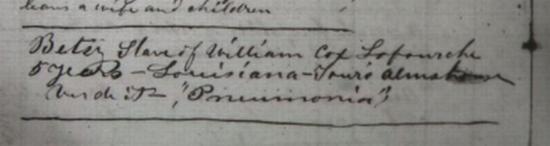 leaves a wife and children
Betsy Slave of William Cox Lafourche
5 years - Louisiana - Louis
Verdict "Pneumonia"